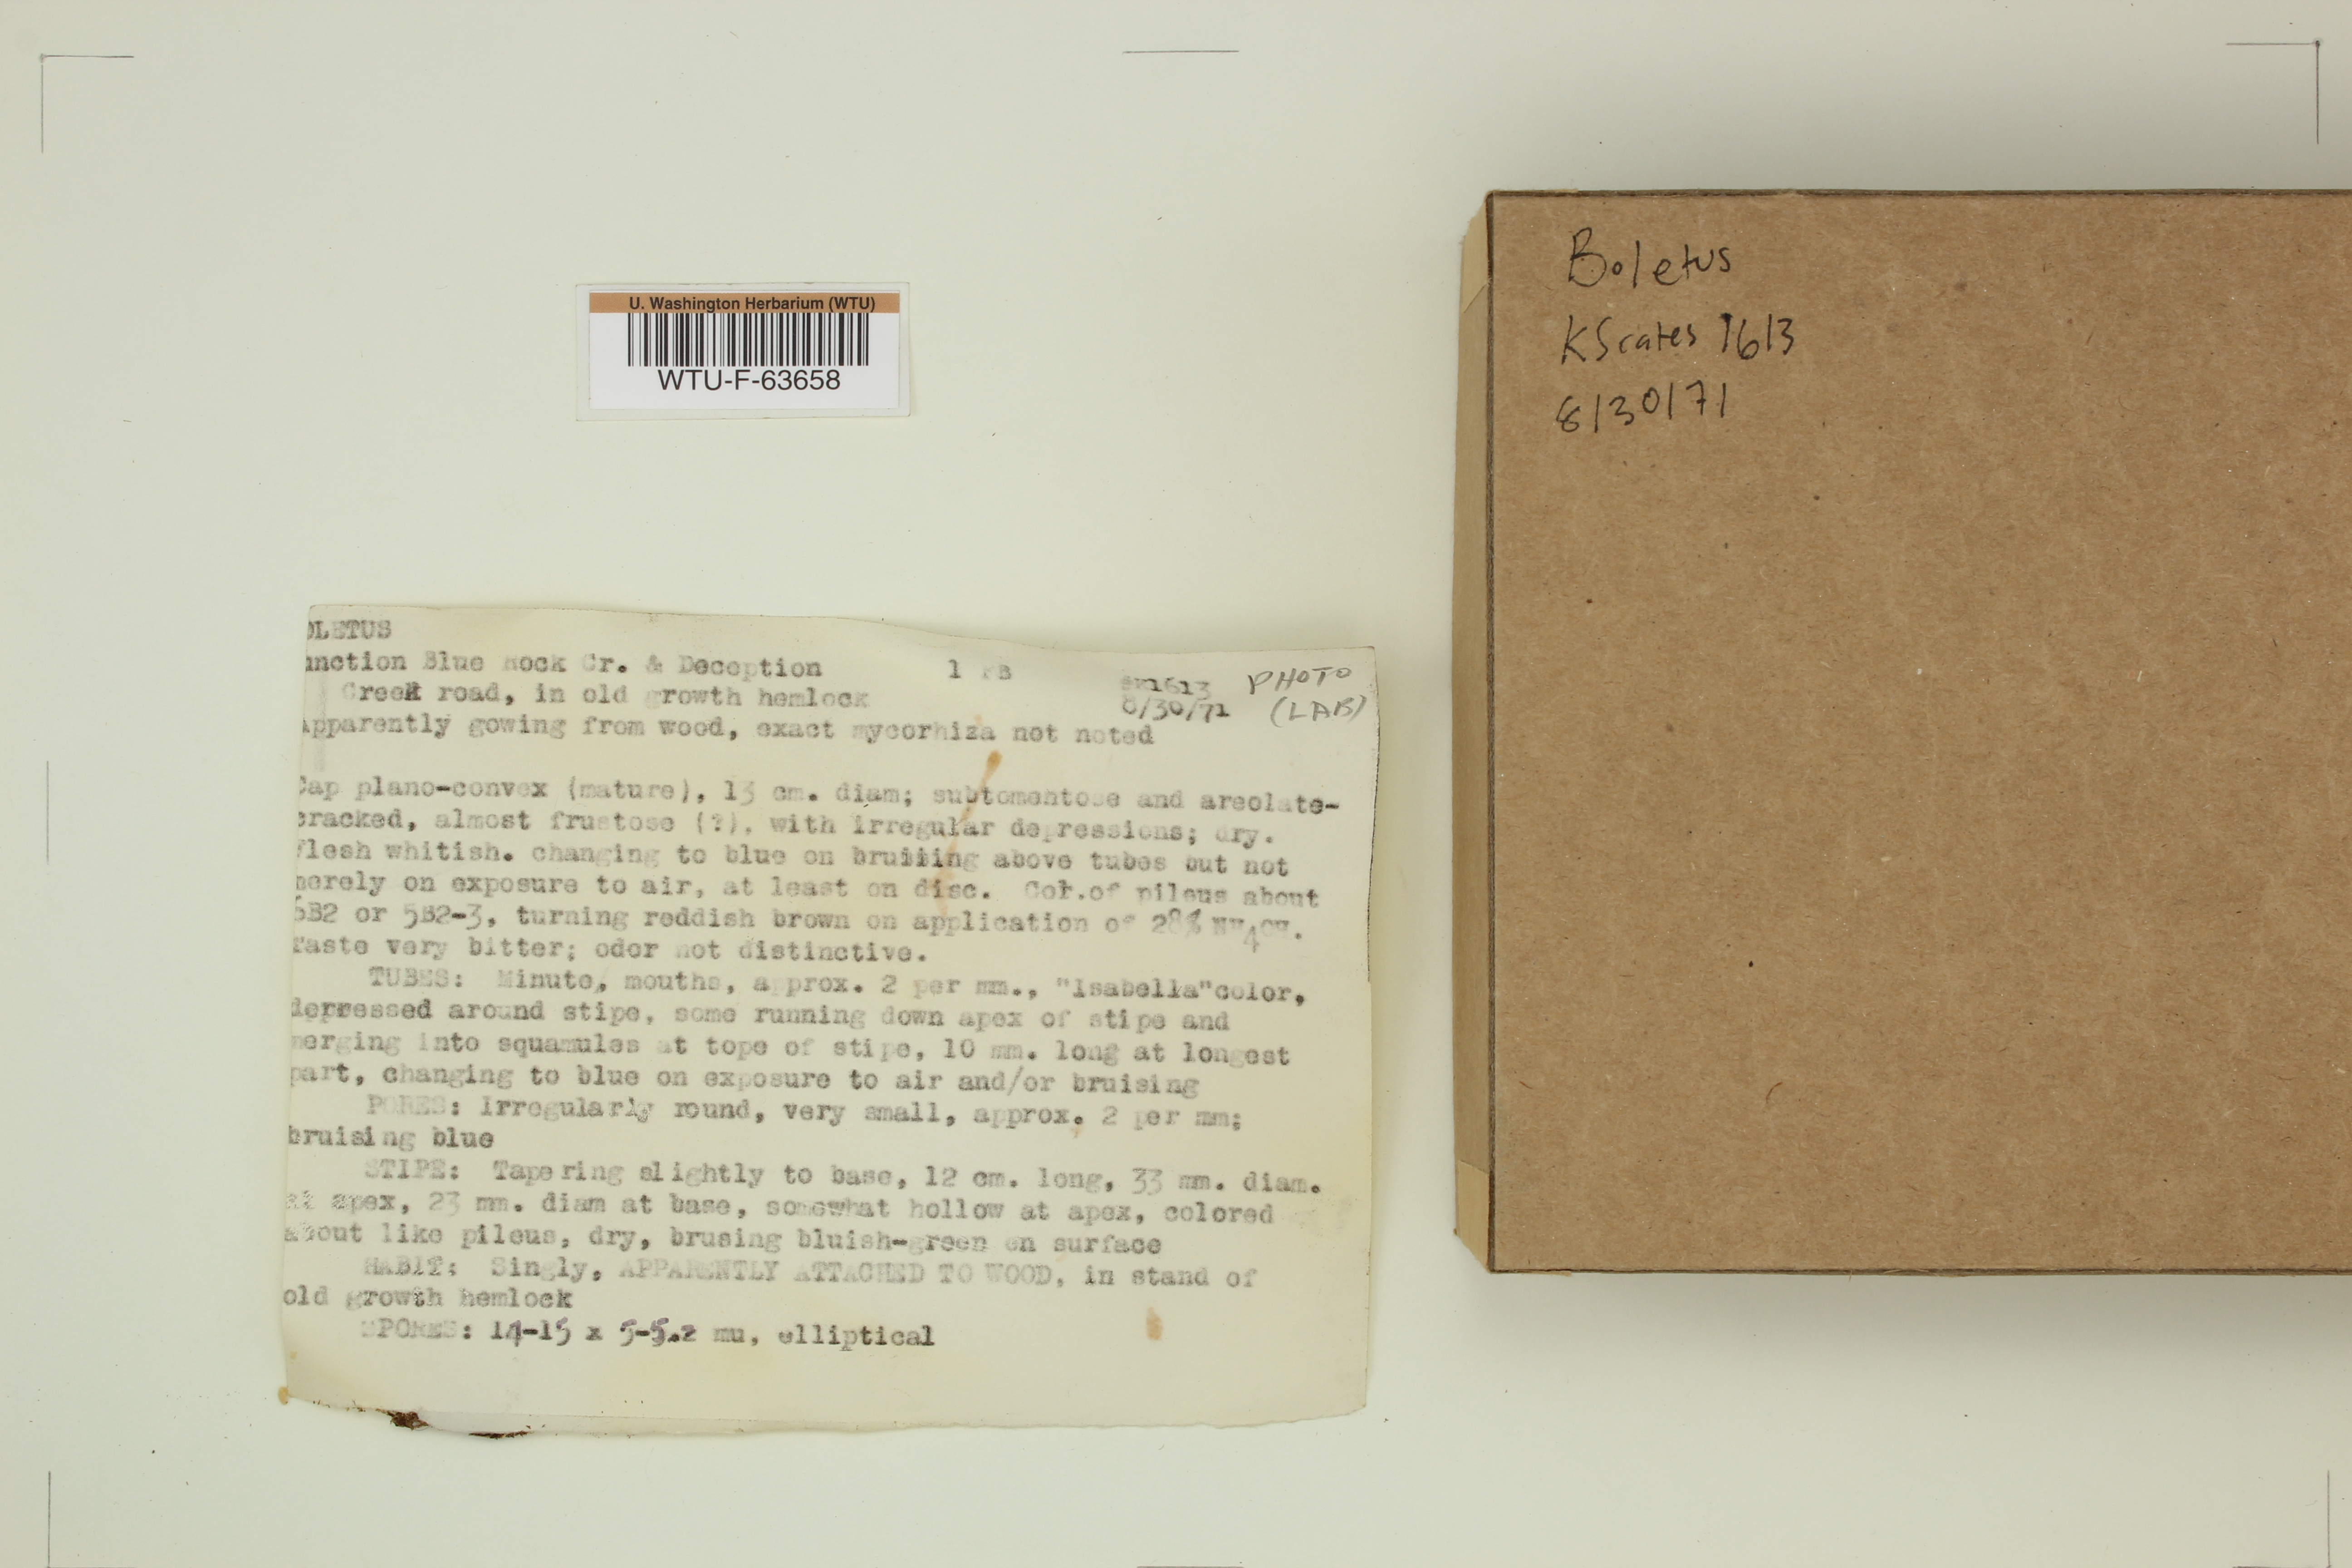 U. Washington Herbarium (WTU)
WTU-F-63658
Boletus
KScates 1613
8/30/71
OLETUS
unction Blue Rock Cr. & Deception 1 FB
Creek road, in old growth hemlock
1613 PHOTO
8/30/71 (LAB)
Apparently gowing from wood, exact mycorhiza not noted
Cap plano-convex (mature), 13 cm. diam; subtomentose and areolate-
cracked, almost frustose (?), with irregular depressions; dry.
Flesh whitish. changing to blue on bruising above tubes but not
merely on exposure to air, at least on disc. Col.of pileus about
6B2 or 5B2-3, turning reddish brown on application of 28% NH4OH.
Taste very bitter; odor not distinctive.
TUBES: Minute, mouths, approx. 2 per mm., "Isabella"color,
depressed around stipe, some running down apex of stipe and
merging into squamules at tope of stipe, 10 mm. long at longest
part, changing to blue on exposure to air and/or bruising
PORES: Irregularly round, very small, approx. 2 per mm;
bruising blue
STIPE: Tapering slightly to base, 12 cm. long, 33 mm. diam.
at apex, 23 mm. diam at base, somewhat hollow at apex, colored
about like pileus, dry, brusing bluish-green on surface
HABIT: Singly, APPARENTLY ATTACHED TO WOOD, in stand of
old growth hemlock
SPORES: 14-15 x 5-5.2 mu, elliptical